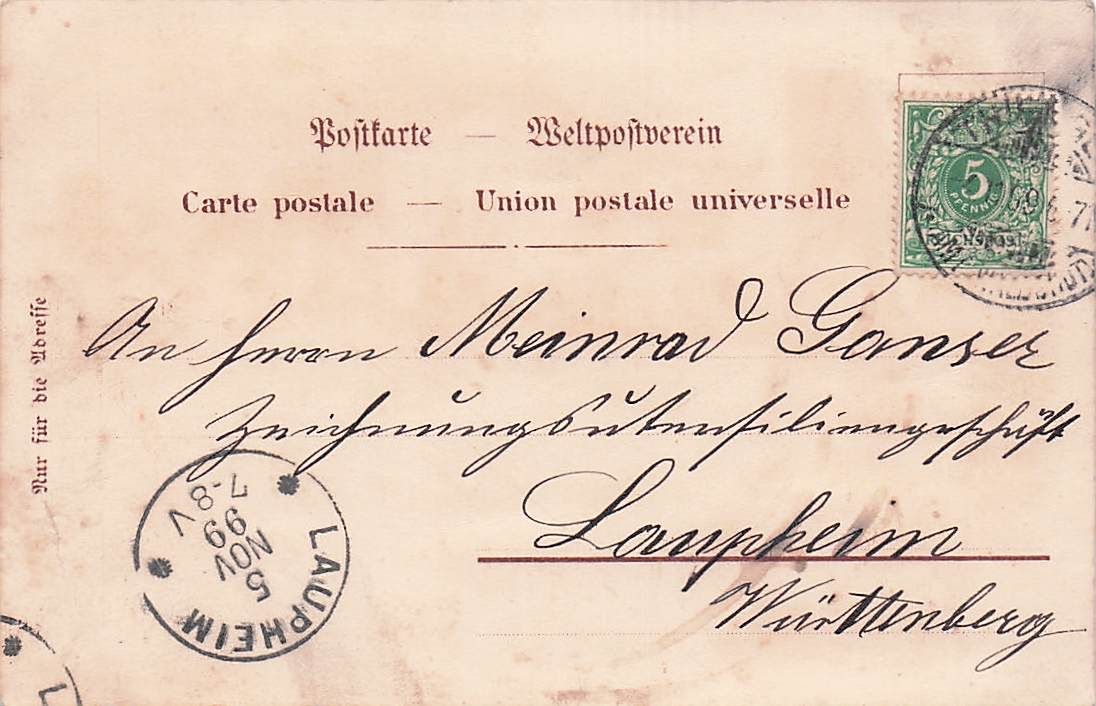 Postkarte — Weltpostverein
Carte postale — Union postale universelle
5
PFENNIG
REICHSPOST
Nur für die Adresse
An Herrn Meinrad Ganser
Zeichnungsutensiliengeschäft
Laupheim
Württemberg
LAUPHEIM
5
NOV
99
7-8 V
L